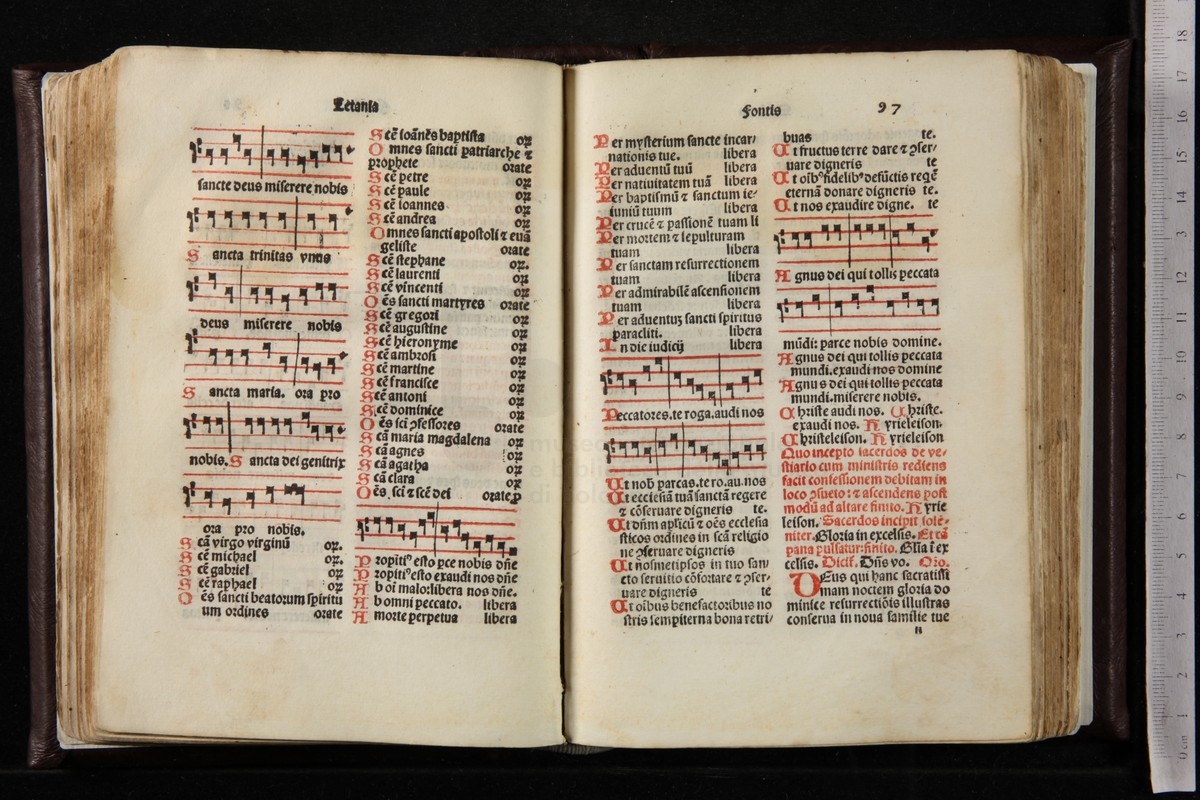 Letania
sancte deus miserere nobis
S ancta trinitas vnus
deus miserere nobis
S ancta maria. ora pro
nobis. S ancta dei genitrix
ora pro nobis.
S cā virgo virginū oꝝ.
S cē michael oꝝ.
S cē gabriel oꝝ
S cē raphael oꝝ
O ēs sancti beatorum spiritu
um ordines orate
S cē ioānēs baptista oꝝ
O mnes sancti patriarche ⁊
prophete orate
S cē petre oꝝ
S cē paule oꝝ
S cē ioannes oꝝ
S cē andrea oꝝ
O mnes sancti apostoli ⁊ euā
geliste orate
S cē stephane oꝝ.
S cē laurenti oꝝ
S cē vincenti oꝝ
O ēs sancti martyres orate
S cē gregori oꝝ
S cē augustine oꝝ
S cē hieronyme oꝝ
S cē ambrosi oꝝ
S cē martine oꝝ
S cē francisce oꝝ
S cē antoni oꝝ
S cē dominice oꝝ
O ēs sci ꝯfessores orate
S cā maria magdalena oꝝ
S cā agnes oꝝ
S cā agatha oꝝ
S cā clara oꝝ
O ēs. sci ⁊ scē dei orate.p
P ropitiꝰ esto pce nobis dñe
P ropitiꝰ esto exaudi nos dñe
A b oī malo:libera nos dñe.
A b omni peccato. libera
A morte perpetua libera
Fontis 97
P er mysterium sancte incar/
nationis tue. libera
P er aduentū tuū libera
P er natiuitatem tuā libera
P er baptismū ⁊ sanctum ie/
iuniū tuum libera
P er crucē ⁊ passionē tuam li
P er mortem ⁊ sepulturam
tuam libera
P er sanctam resurrectionem
tuam libera
P er admirabilē ascensionem
tuam libera
P er aduentuꝫ sancti spiritus
paracliti. libera
I n die iudicij libera
Peccatores.te roga.audi nos
U t nob̄ parcas.te ro.au.nos
U t ecclesiā tuā sanctā regere
⁊ cōseruare digneris te.
U t dñm aplicū ⁊ oēs ecclesia
sticos ordines in scā religio
ne ꝯseruare digneris
U t nosmetipsos in tuo san/
cto seruitio cōfortare ⁊ ꝯser/
uare digneris te
U t oibus benefactoribus no
stris sempiterna bona retri/
buas te.
U t fructus terre dare ⁊ ꝯser/
uare digneris te
U t oibꝰ fidelibꝰ defūctis requē
eternā donare digneris te.
U t nos exaudire digne. te
A gnus dei qui tollis peccata
mūdi: parce nobis domine.
A gnus dei qui tollis peccata
mundi.exaudi nos domine
A gnus dei qui tollis peccata
mundi.miserere nobis.
C hriste audi nos. C hriste.
exaudi nos. K yrieleison.
C hristeleison. K yrieleison
Quo incepto sacerdos de ve/
stiario cum ministris rediens
facit confessionem debitam in
loco ꝯsueto: ⁊ ascendens post
modū ad altare finito. K yrie
leison. Sacerdos incipit sole/
niter. Gloria in excelsis. Et cā
pana pulsatur: finito. Glia ī ex
celsis. Dicit. Dñs vo. Oro.
DEus qui hanc sacratissi
mam noctem gloria do
minice resurrectiōis illustras
conserua in noua familie tue
n